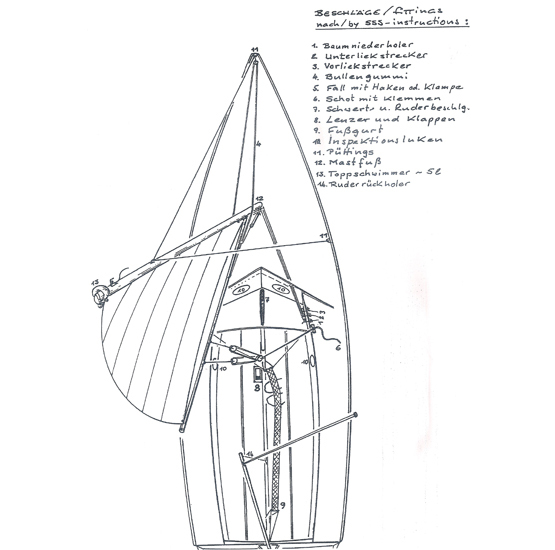 BESCHLÄGE/fittings
nach/by SSS-instructions:
1. Baumniederholer
2. Unterliekstrecker
3. Vorliekstrecker
4. Bullengummi
5. Fall mit Haken od. Klampe
6. Schot mit Klemmen
7. Schwert- u. Ruderbeschlg.
8. Lenzer und Klappen
9. Fußgurt
10. Inspektionsluken
11. Püttings
12. Mastfuß
13. Toppschwimmer ~ 5l
14. Ruderrückholer
11
4
12
11
13
5
10
10
7
3
2
1
6
10
10
8
14
9